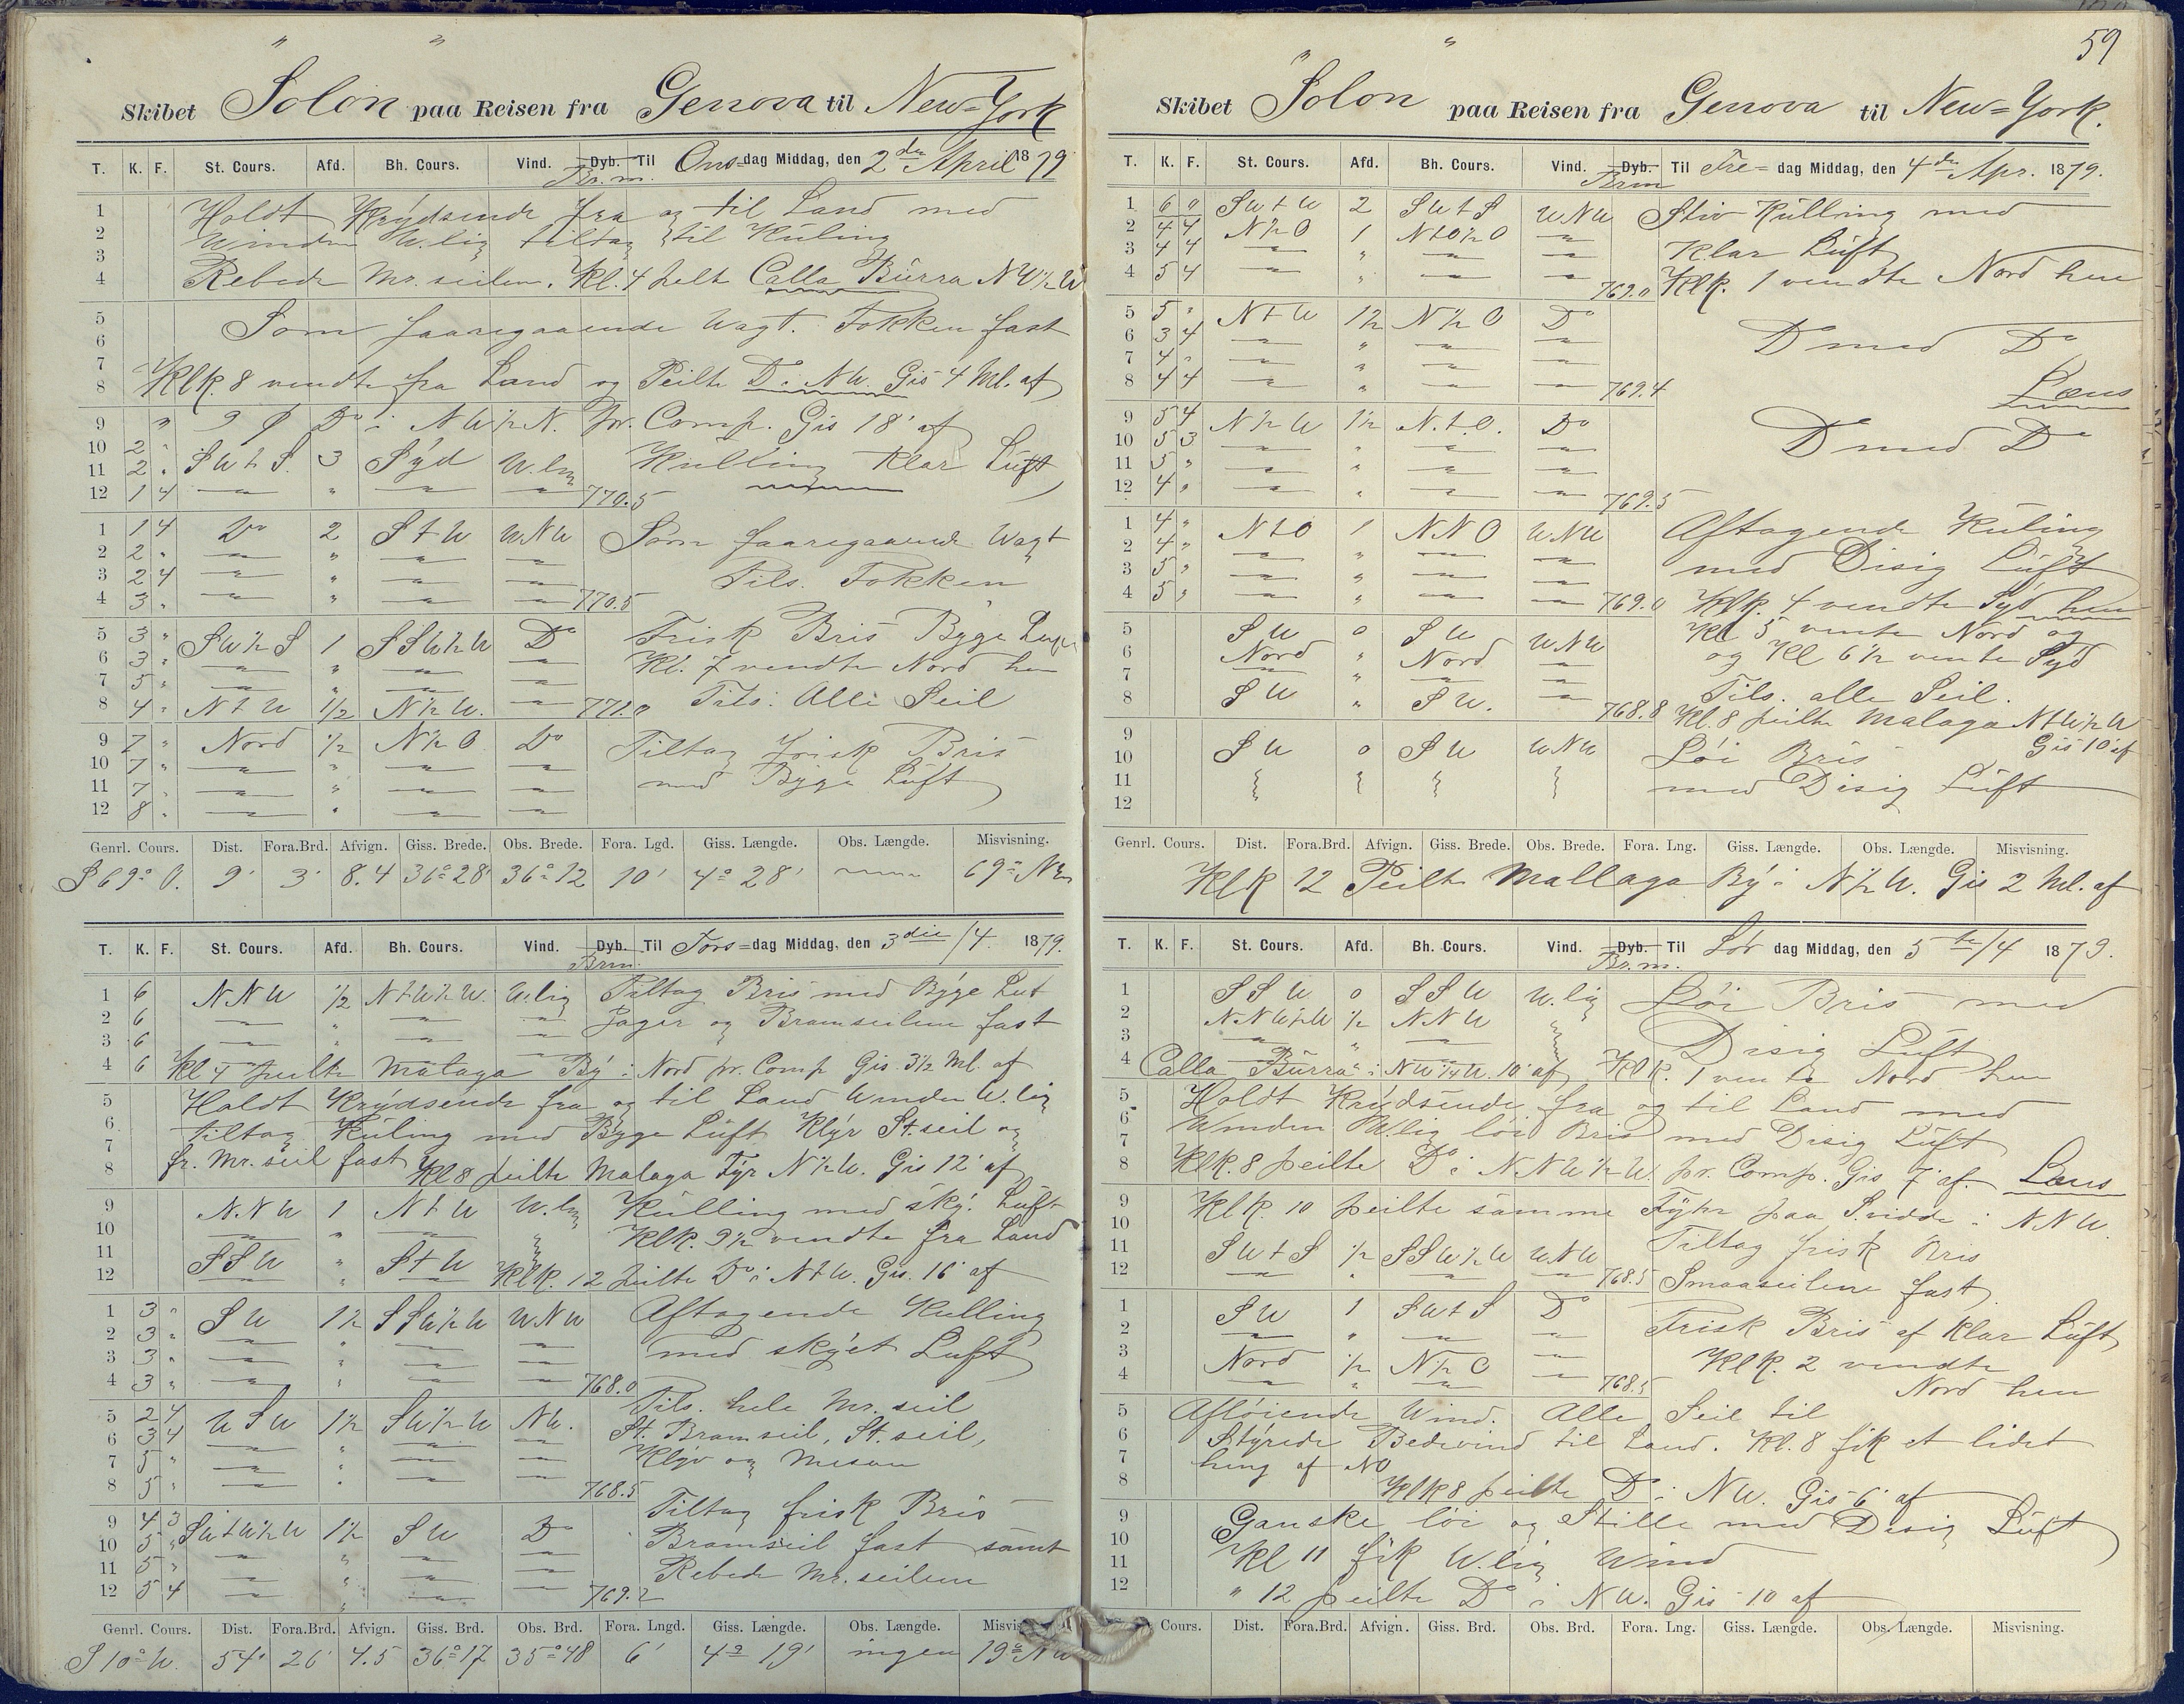 Skibet "Solon" paa Reisen fra Genova til New=York
T. K. F. St. Cours. Afd. Bh. Cours. Vind. Dyb. Br.m. Til Ons=dag Middag, den 2den April 1879
1 Holdt Krÿdsende fra og til Land med
2 Winden W.lig tiltag til Küling
3
4 Rebede Mr. seilen. Kl. 4 peilt Calla Bürra NW½W
5 Som faaregaaende Wagt. Fokken fast
6
7
8 Klk. 8 vendte fra Land og Peilte Do i NW. Gis 4 Ml. af
9 " 9 Do i NW½N. pr. Comp. Gis 18' af
10 2 "
11 2 " SWtS. 3 Sÿd W.lig Kulling Klar Lüft
12 1 4 — " — — 770.5
1 1 4 Do 2 StW WNW Som faaregaaende Wagt
2 2 " — " — —
3 2 4 — " — — Tils. Fokken
4 3 " — " — — 770.5
5 3 " SW½S 1 SSW½W Do Frisk Bris Bÿge Luft
6 3 " — " — — Kl. 7 vendte Nord hen
7 5 " — " — —
8 4 " NtW 1/2 N½W. — 771.0 Tils. Alle Seil
9 7 " Nord ½ N½O Do Tiltag frisk Bris
10 7 " — " — —
11 7 " — " — — med Bÿge Lüft
12 8 " — " — —
Genrl. Cours. Dist. Fora.Brd. Afvign. Giss. Brede. Obs. Brede. Fora. Lgd. Giss. Længde. Obs. Længde. Misvisning.
S 69° O. 9' 3' 8.4 36°28' 36°12 10' 4° 28' —
T. K. F. St. Cours. Afd. Bh. Cours. Vind. Dyb. Brm. Til Tors=dag Middag, den 3die/4. 1879.
1 6 NNW ½ NtW½W. W.lig Tiltag Bris med Bÿge Luft
2 6 — " — — Jager og Bramseilene fast
3 6 — " — —
4 6 Kl 4 peilte Malaga Bÿ i Nord pr. Comp Gis. 3½ Ml. af
5 Holdt Krÿdsende fra og til Land Winden W.lig
6 tiltag Küling med Bÿge Lüft Klÿr St. seil og
7 fr. Mr. seil fast
8 Kl 8 peilte Malaga Fÿr N½W. Gis 12' af
9 NNW 1 NtW W.lig Külling med skÿ. Lüft
10 — " — Klk. 9½ vendte fra Land
11 SSW " StW
12 — " — Klk. 12 peilte Do i NtW. Gis. 16' af
1 3 " SW 1½ SSW½W WNW Aftagende Kulling
2 3 " — " — —
3 3 " — " — — med skÿet Luft
4 3 " — " — — 768.0
5 2 4 WSW 1½ SW½W NW. Tils. hele Mr. seil
6 3 4 — " — — St. Bramseil, St. seil,
7 5 " — " — — Klÿv og Mesan
8 5 " — " — — 768.5
9 4 3 SWtW½W 1½ SW Do Tiltag frisk Bris
10 5 " — " — — Bramseil fast samt
11 5 " — " — — Rebede Mr. seilene
12 5 4 — " — — 769.2
Genrl. Cours. Dist. Fora.Brd. Afvign. Giss. Brd. Obs. Brd. Fora. Lngd. Giss. Længde. Obs. Længde.
S 10° W. 54' 26' 4.5 36°17 35°48 6' 4° 19' ingen 19° NW
59
Skibet "Solon" paa Reisen fra Genova til New=York.
T. K. F. St. Cours. Afd. Bh. Cours. Vind. Dyb. Brm Til Fre=dag Middag, den 4de Apr. 1879.
1 6 0 SWtW 2 SWtS WNW Stiv Külling med
2 4 4 N½O 1 NtO½O —
3 4 4 — " — — Klar Lüft
4 5 4 — " — — 769.0 Klk. 1 vendte Nord hen
5 5 " NtW 1½ N½O Do
6 3 4 — " — — Do med Do
7 4 " — " — —
8 4 4 — " — — 769.4 Læns
9 5 4 N½W 1½ N.t.O. Do
10 5 3 — " — — Do med Do
11 5 " — " — —
12 4 " — " — — 769.5
1 4 " NtO 1 NNO WNW Aftagende Küling
2 4 " — " — —
3 5 " — " — — med Disig Luft
4 5 " — " — — 769.0 Klk. 4 vendte Sÿd hen
5 SW 0 SW WNW Kl 5 vente Nord og
6 Nord " Nord — og Kl 6½ vente Sÿd
7 — " — Tils. alle Seil.
8 SW " SW. — 768.8 Kl. 8 peilte Malaga NtW½W
9 Gis 10' af
10 SW 0 SW WNW Löi Bris
11 med Disig Lüft
12
Genrl. Cours. Dist. Fora.Brd. Afvign. Giss. Brede. Obs. Brede. Fora. Lng. Giss. Længde. Obs. Længde. Misvisning.
Klk 12 Peilte Mallaga Bÿ i N½W. Gis 2 Ml. af
T. K. F. St. Cours. Afd. Bh. Cours. Vind. Dyb. Br.m. Til Lör dag Middag, den 5te/4 1879.
1 SSW 0 SSW W.lig Löi Bris med
2 NNW½W ½ NNW
3 — " — Disig Luft
4 Calla Bürra i NW¼W. 10' af Klk. 1 vente Nord hen
5 Holdt Krÿdsende fra og til Land med
6 Winden W.lig löi Bris med Disig Lüft
7
8 Klk. 8 peilte Do i NNW½W. pr. Comp. Gis 7' af. Læns
9 Klk. 10 peilte samme Fÿhr paa S. vidde i NNW.
10 Tiltag frisk Bris
11 SWtS ½ SSW½W WNW
12 — " — — 768.5 Smaaseilene fast.
1 SW 1 SWtS Do Frisk Bris af Klar Lüft
2 — " — —
3 Nord ½ N½O — Klk. 2 vendte
4 — " — — 768.5 Nord hen
5 Aflöiende Wind. Alle Seil til
6 Stÿrede Bedevind til Land. Kl. 8 fik et lidet
7 hing af NO
8 Klk 8 peilte Do i NW. Gis 6' af
9 Ganske löi og Stille med Disig Lüft
10
11 Kl 11 fik W.lig Wind
12 " 12 peilte Do i NW. Gis 10 af
Cours. Dist. Fora.Brd. Afvign. Giss. Brd. Obs. Brd. Fora. Lng. Giss. Længde. Obs. Længde. Misvisning.